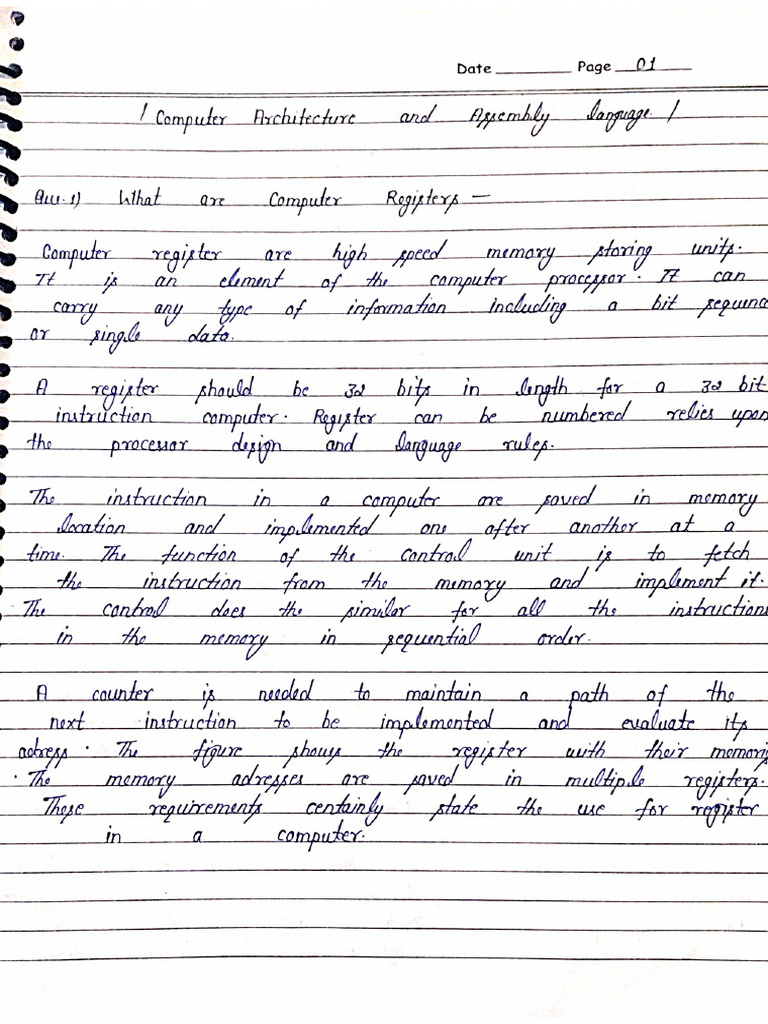 Date ________ Page 01
/ Computer Architecture and Assembly language. /
Que.1) What are Computer Registers —
Computer register are high speed memory storing units.
It is an element of the computer processor. It can
carry any type of information including a bit sequenc
or single data.
A register should be 32 bits in length for a 32 bit
instruction computer. Register can be numbered relies upon
the processor design and language rules.
The instruction in a computer are saved in memory
location and implemented one after another at a
time. The function of the control unit is to fetch
the instruction from the memory and implement it.
The control does the similar for all the instructions
in the memory in sequential order.
A counter is needed to maintain a path of the
next instruction to be implemented and evaluate its
adress. The figure shows the register with their memoris
. The memory adresses are saved in multiple registers.
These requirements centainly state the use for register
in a computer.